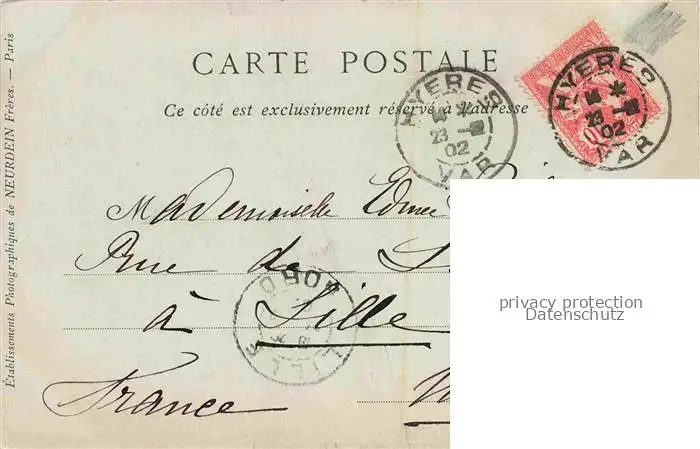 CARTE POSTALE
Ce côté est exclusivement réservé à l'adresse
HYERES
23
02
VAR
HYERES
23
02
VAR
Mademoiselle
Rue de
à Lille
France
LILLE
NORD
Établissements Photographiques de NEURDEIN Frères. — Paris
privacy protection
Datenschutz